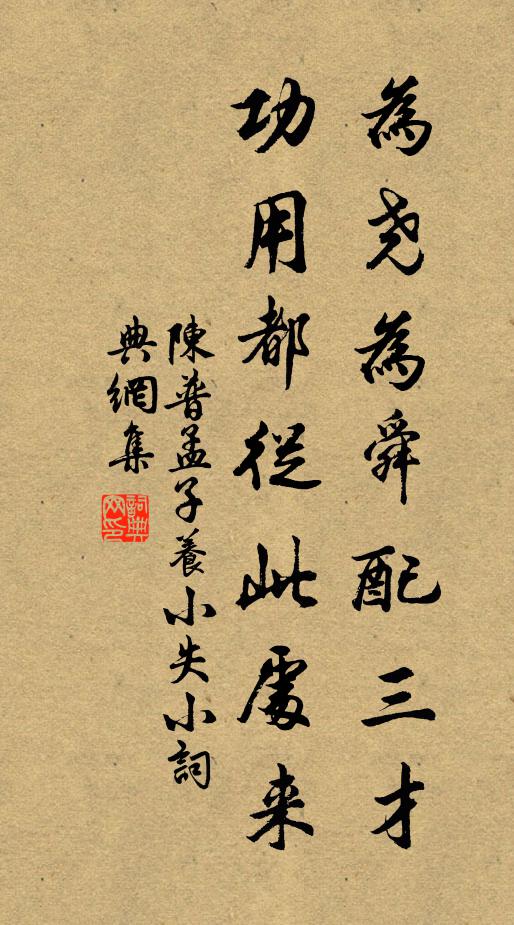 為尧為舜配三才
功用都從此處来
陳普孟子養小失小詞
典網集
詞典
网印